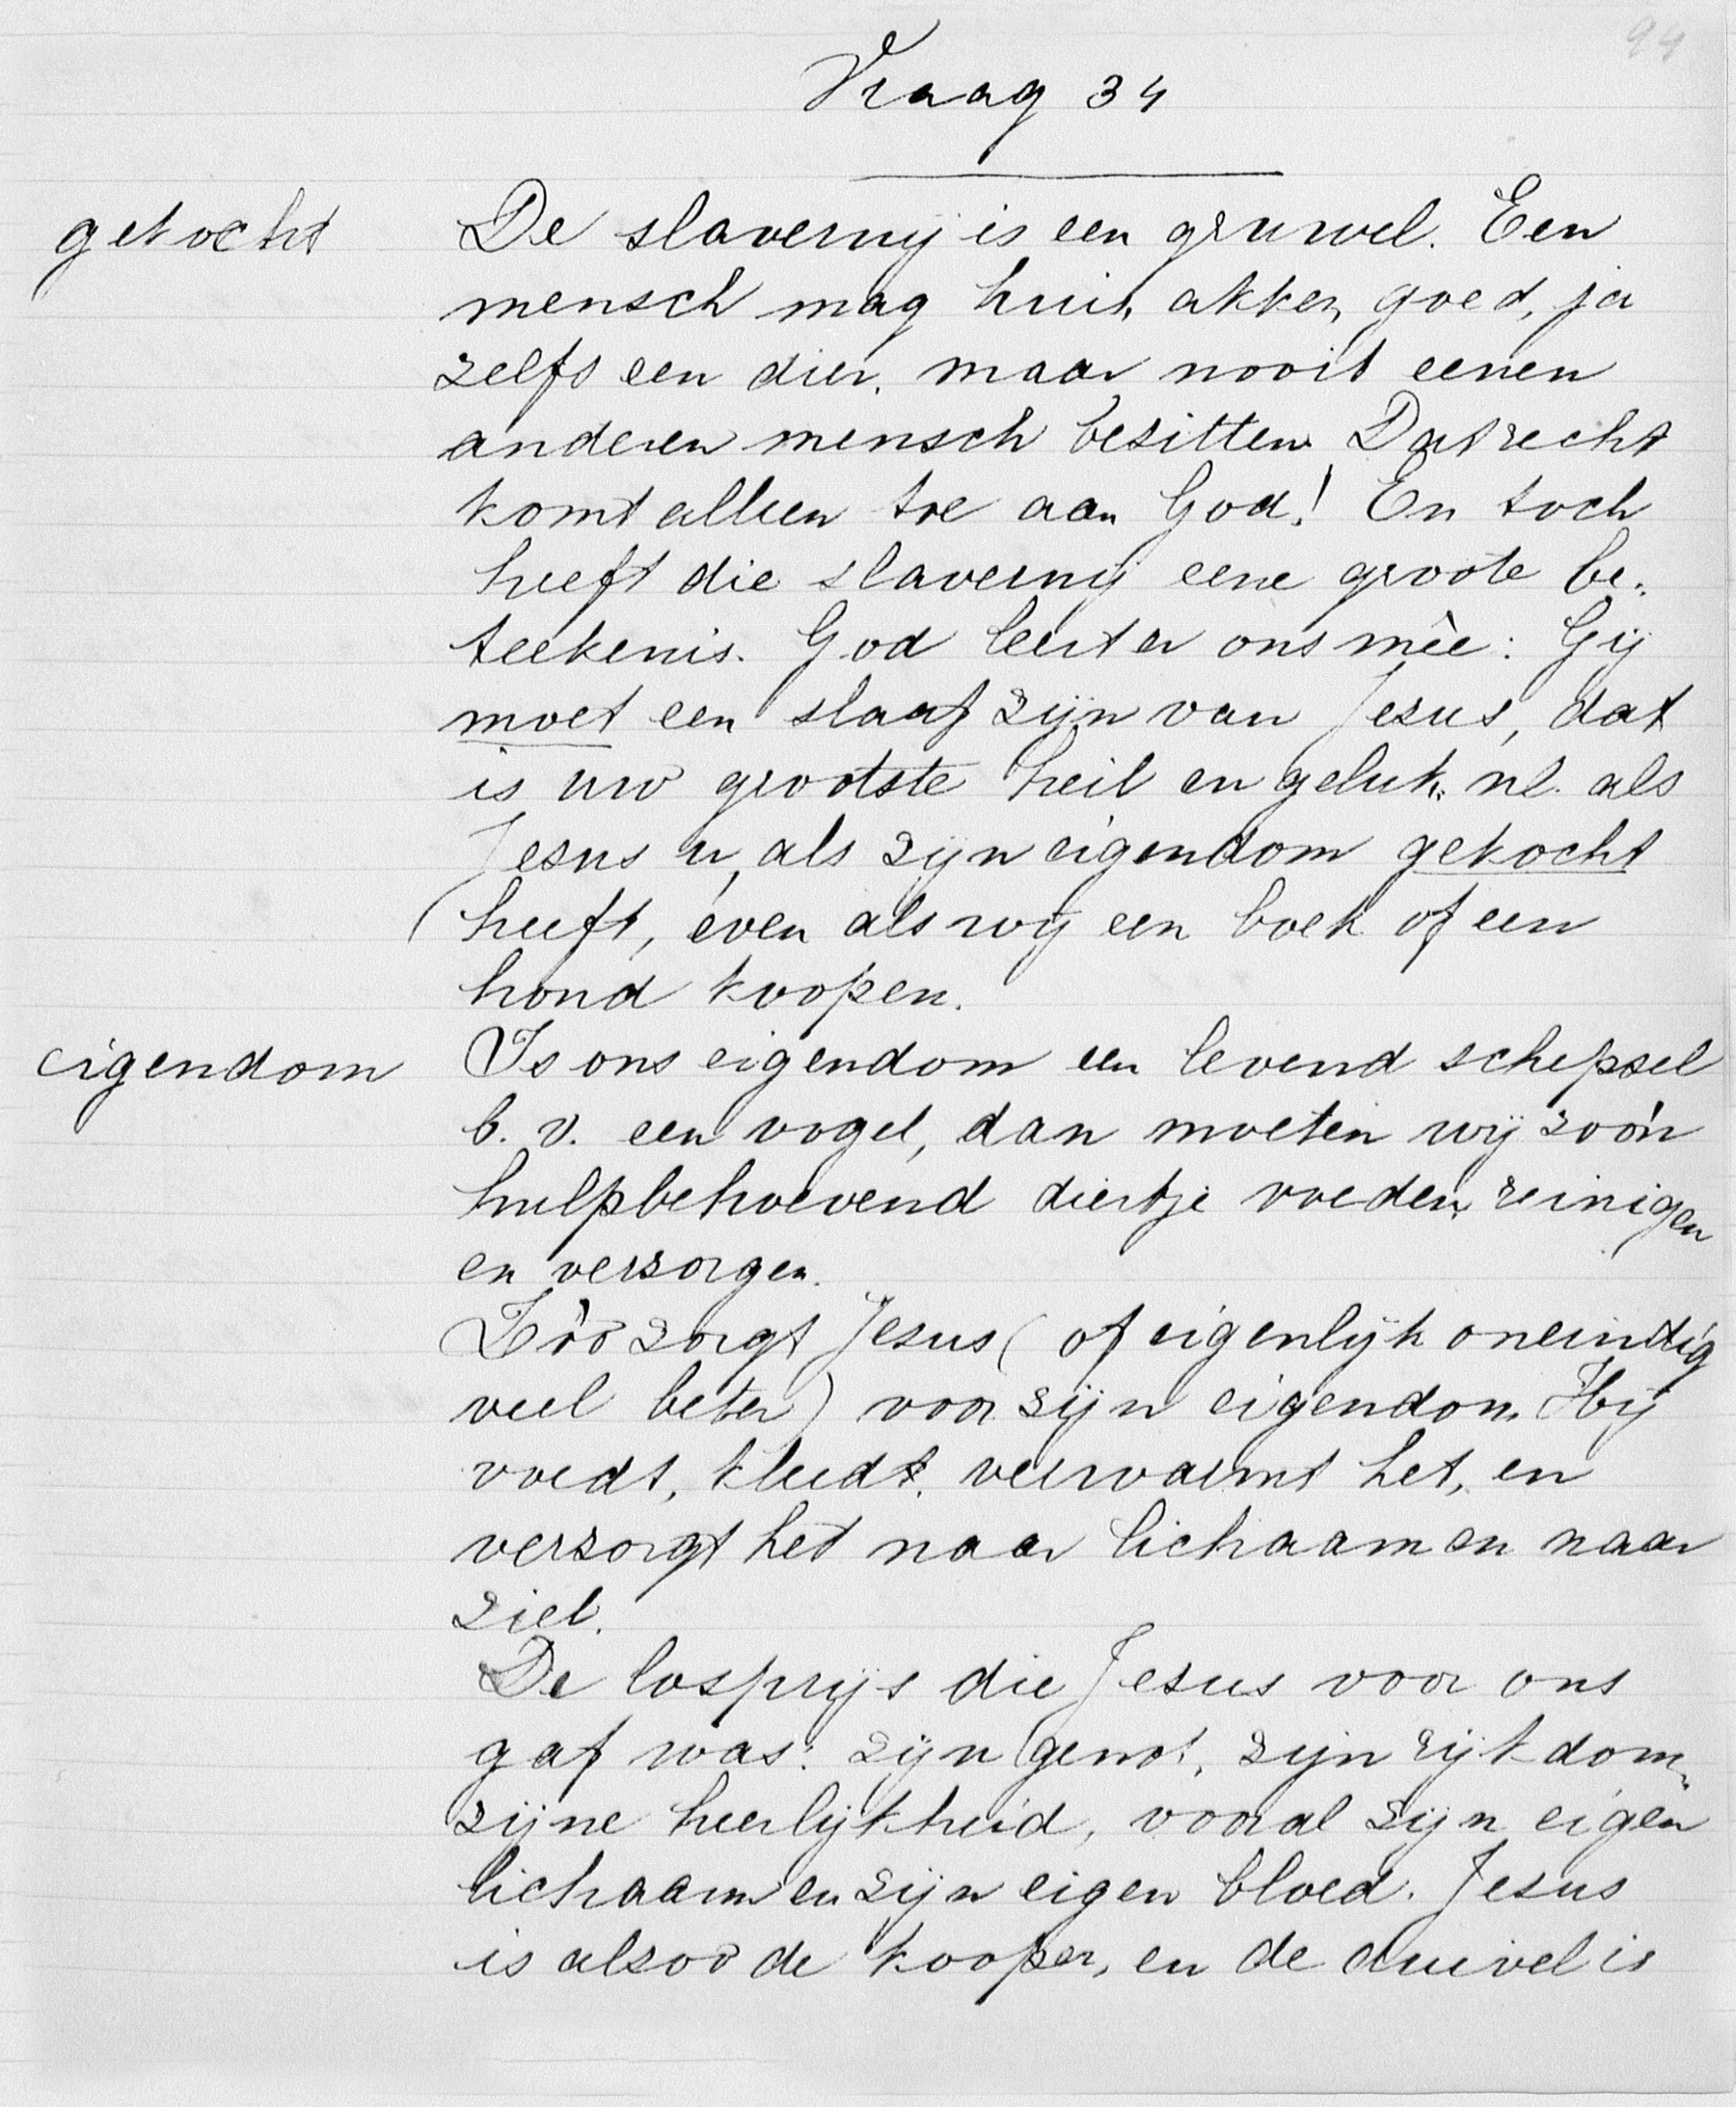 94
Vraag 34
gekocht
De slavernij is een gruwel. Een
mensch mag huis, akker, goed, ja
zelfs een dier, maar nooit eenen
anderen mensch bezitten. Dat recht
komt alleen toe aan God! En toch
heeft die slavernij eene groote be-
teekenis. God leert er ons mêe: Gij
moet een slaaf zijn van Jezus, dat
is uw grootste heil en geluk, nl. als
Jezus u, als zijn eigendom gekocht
heeft, even als wij een boek of een
hond koopen.
eigendom
Is ons eigendom een levend schepsel
b. v. een vogel, dan moeten wij zoo'n
hulpbehoevend diertje voeden, reinigen
en verzorgen.
Zóó zorgt Jezus (of eigenlijk oneindig
veel beter) voor zijn eigendom. Hij
voedt, kleedt, verwarmt het, en
verzorgt het naar lichaam en naar
ziel.
De losprijs die Jezus voor ons
gaf was: zijn genot, zijn rijkdom,
zijne heerlijkheid, vooral zijn eigen
lichaam en zijn eigen bloed. Jezus
is alzoo de kooper, en de duivel is